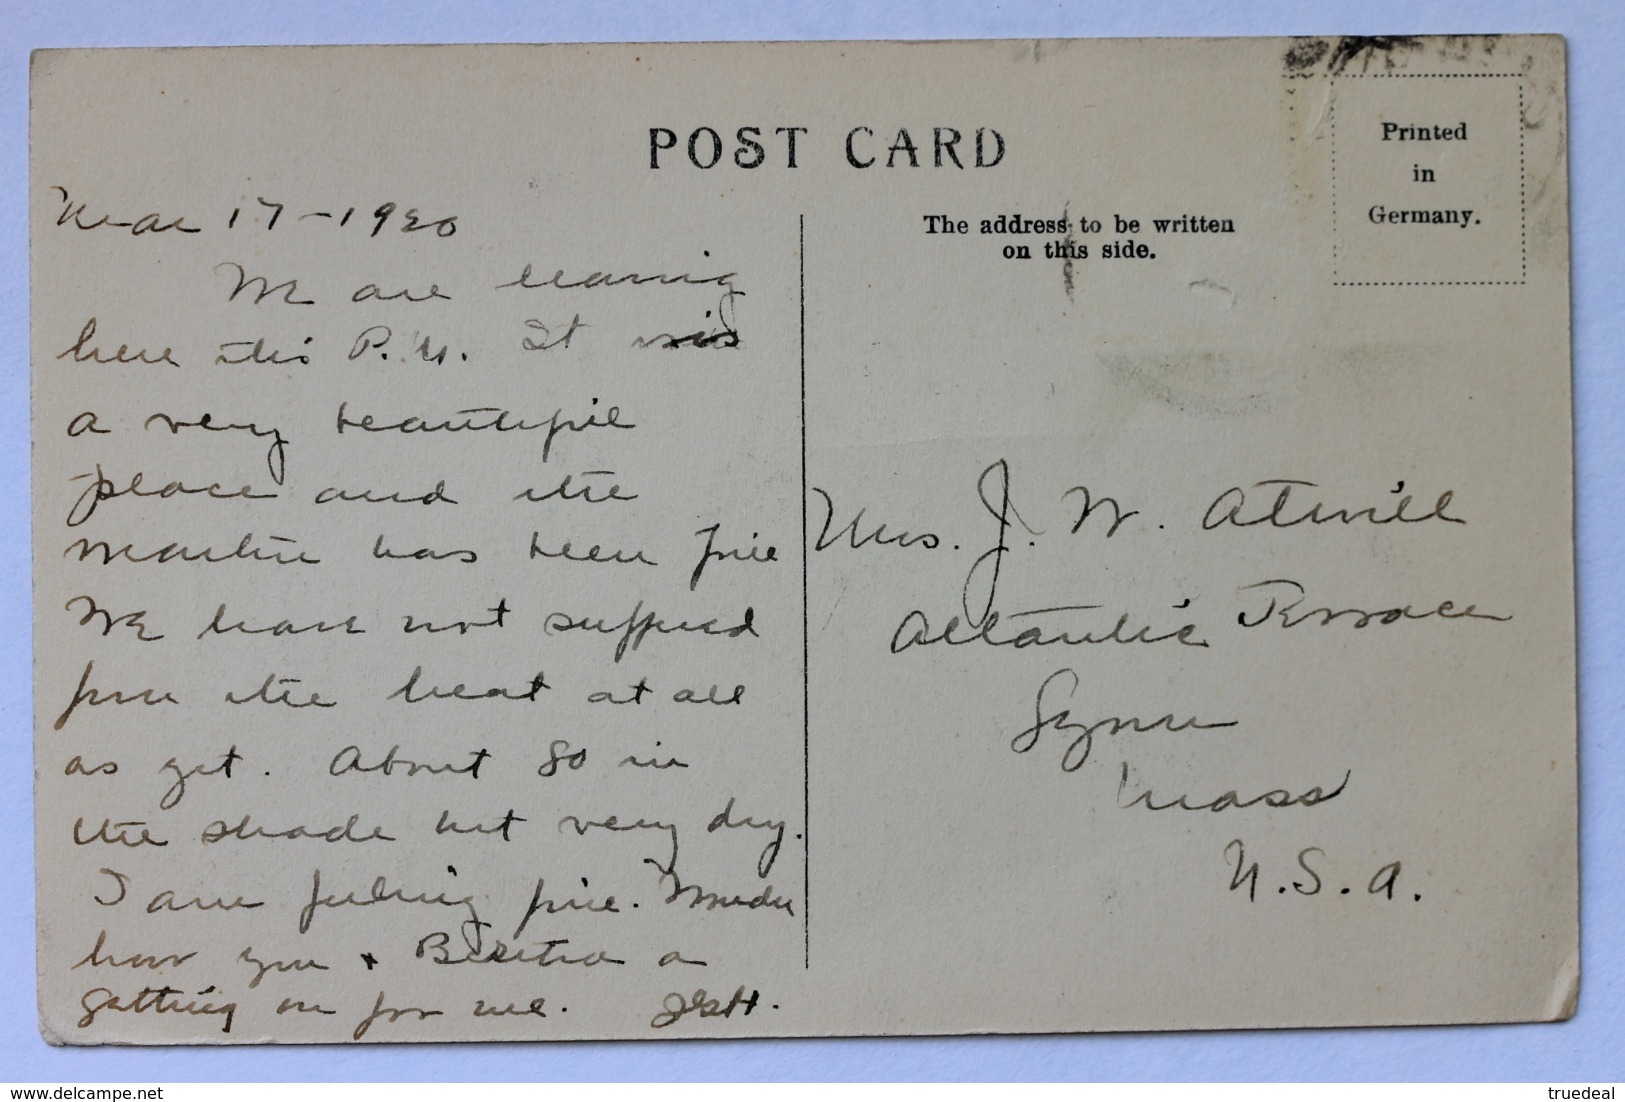 POST CARD
Printed
in
Germany.
The address to be written
on this side.
Mar 17-1920
We are leaving
here this P.M. It is
a very beautiful
place and the
weather has been fine
We have not suffered
from the heat at all
as yet. About 80 in
the shade but very dry.
I am feeling fine. Wonder
how you + a
getting on for me.
Mrs. J. W. Atwill
Atlantic Terrace
Lynn
Mass
U.S.A.
www.delcampe.net
truedeal